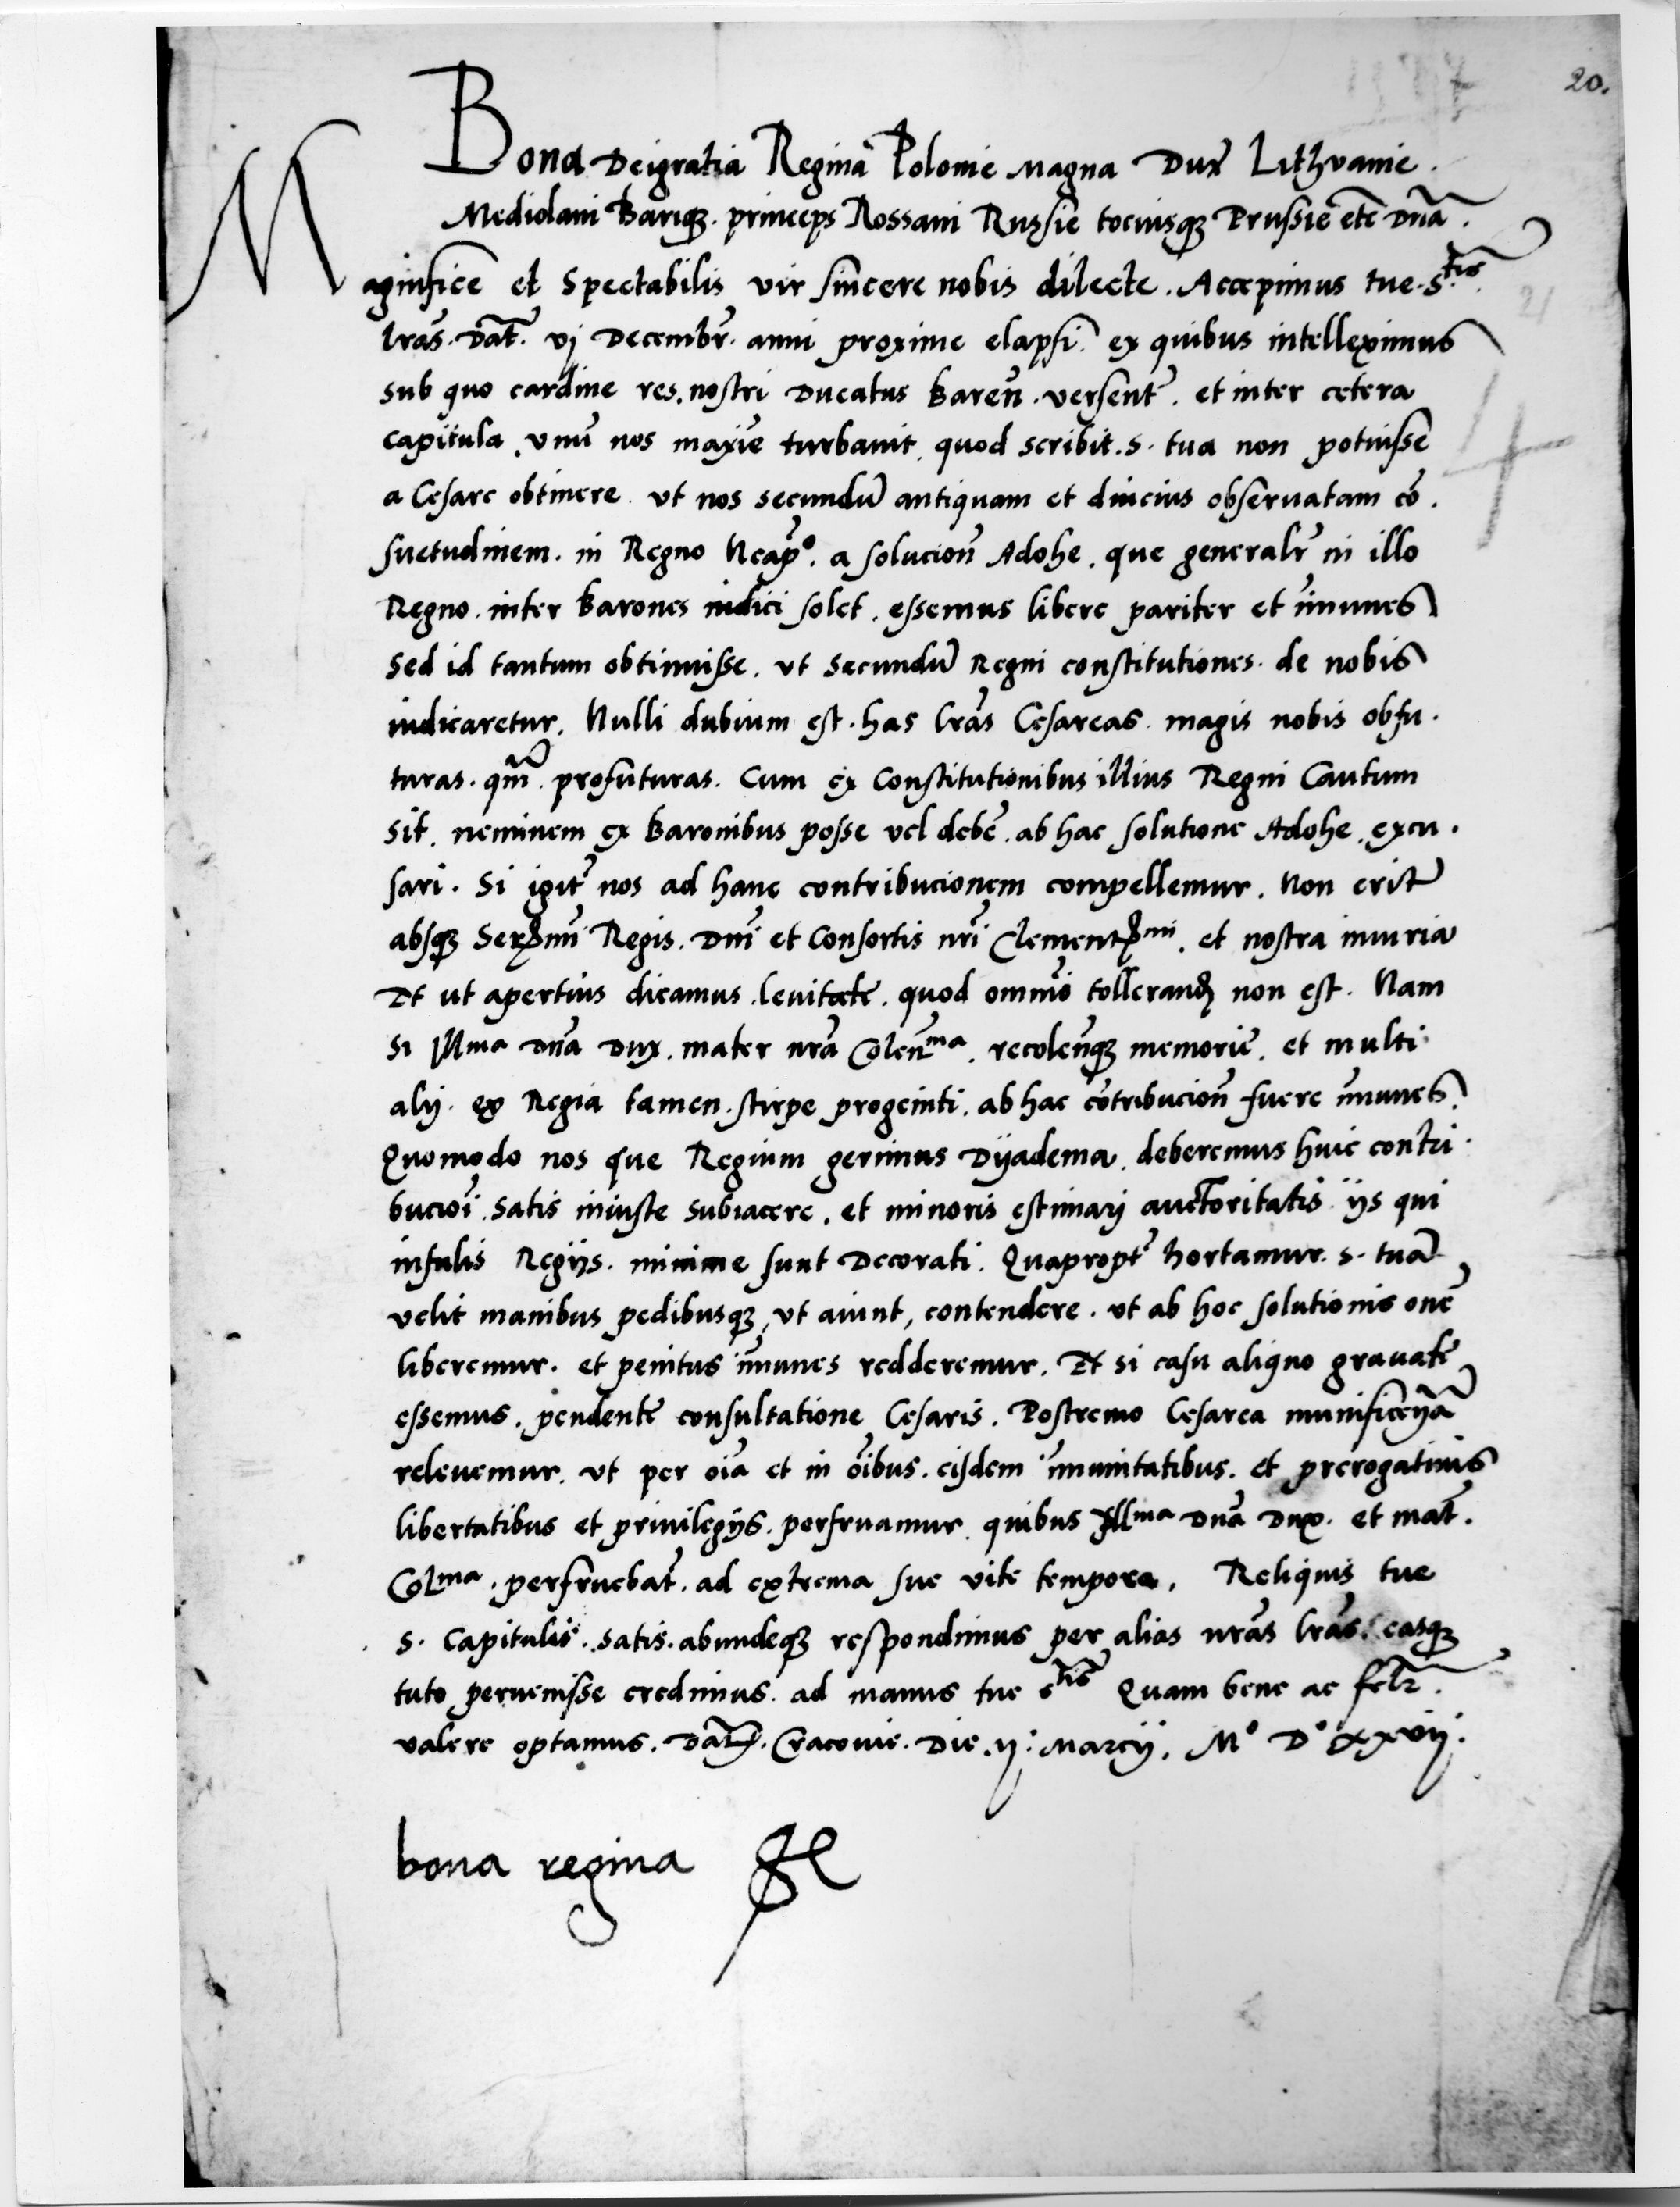 20.
Bona Deigratia Regina Polonie Magna Dux Lithvanie.
Mediolani Bariq3. princeps Rossani Russie tociusq3 Prussie etc̄ Dn̄a.
Magnifice et Spectabilis vir sincere nobis dilecte. Accepimus tue. S.tis.
lr̄as. Dat̄. vj Decembr̄. anni proxime elapsi. ex quibus intelleximus
sub quo cardine res. nostri Ducatus Baren̄. versent̄. et inter cetera
capitula. vnū nos maxīe turbauit. quod scribit. S. tua non potuisse
a Cesare obtinere. vt nos secundū antiquam et diucius obseruatam cō.
suetudinem. in Regno Neap̄º. a solucion̄ Adohe. que generalr̄ in illo
Regno. inter Barones indici solet. essemus libere pariter et īmunes
Sed id tantum obtinuisse. vt secundū Regni constitutiones. de nobis
iudicaretur. Nulli dubium est. has lr̄as Cesareas. magis nobis obfu.
turas. qm̄. profuturas. Cum ex Constitutionibus illius Regni Cautum
sit. neminem ex Baronibus posse vel debē. ab hac solutione Adohe. excu.
sari. Si igit̄ nos ad hanc contribucionem compellemur. Non erit
absq3 Ser̄mi Regis. Dn̄i et Consortis nr̄i Clement̄mi. et nostra iniuria
Et ut apertius dicamus. leuitate. quod omnīo tollerand̄ non est. Nam
si Illma Dn̄a Dux. mater nr̄a Colen̄ma. recolen̄q3 memorie. et multi
alij. ex Regia tamen. stirpe progeniti. ab hac cōtribucion̄ fuere īmunes.
Quomodo nos que Regium gerimus Dyadema. deberemus huic contri.
bucioī. satis iniuste subiacere. et minoris estimarj auctoritatis ijs qui
infulis Regijs. minime sunt Decorati. Quapropt̄ hortamur. S. tuā
velit manibus pedibusq3, vt aiunt, contendere. vt ab hoc solutionis onē
liberemur. et penitus īmunes redderemur. Et si casu aliquo grauate
essemus. pendente consultatione Cesaris. Postremo Cesarea munificen̄a
releuemur. vt per oīa et in oībus. eisdem īmunitatibus. et prerogatiuis
libertatibus et priuilegijs. perfruamur. quibus Illma Dn̄a Dux. et mat̄.
Colma. perfruebat̄. ad extrema sue vite tempora. Reliquis tue
S. Capitulis. satis. abundeq3 respondimus per alias nr̄as lr̄as. easq3
tuto peruenisse credimus. ad manus tue Stis Quam bene ac felr̄.
valere optamus. Dat̄. Cracouie. Die. ij: Marcij. Mº Dº XXvij.
bona regina